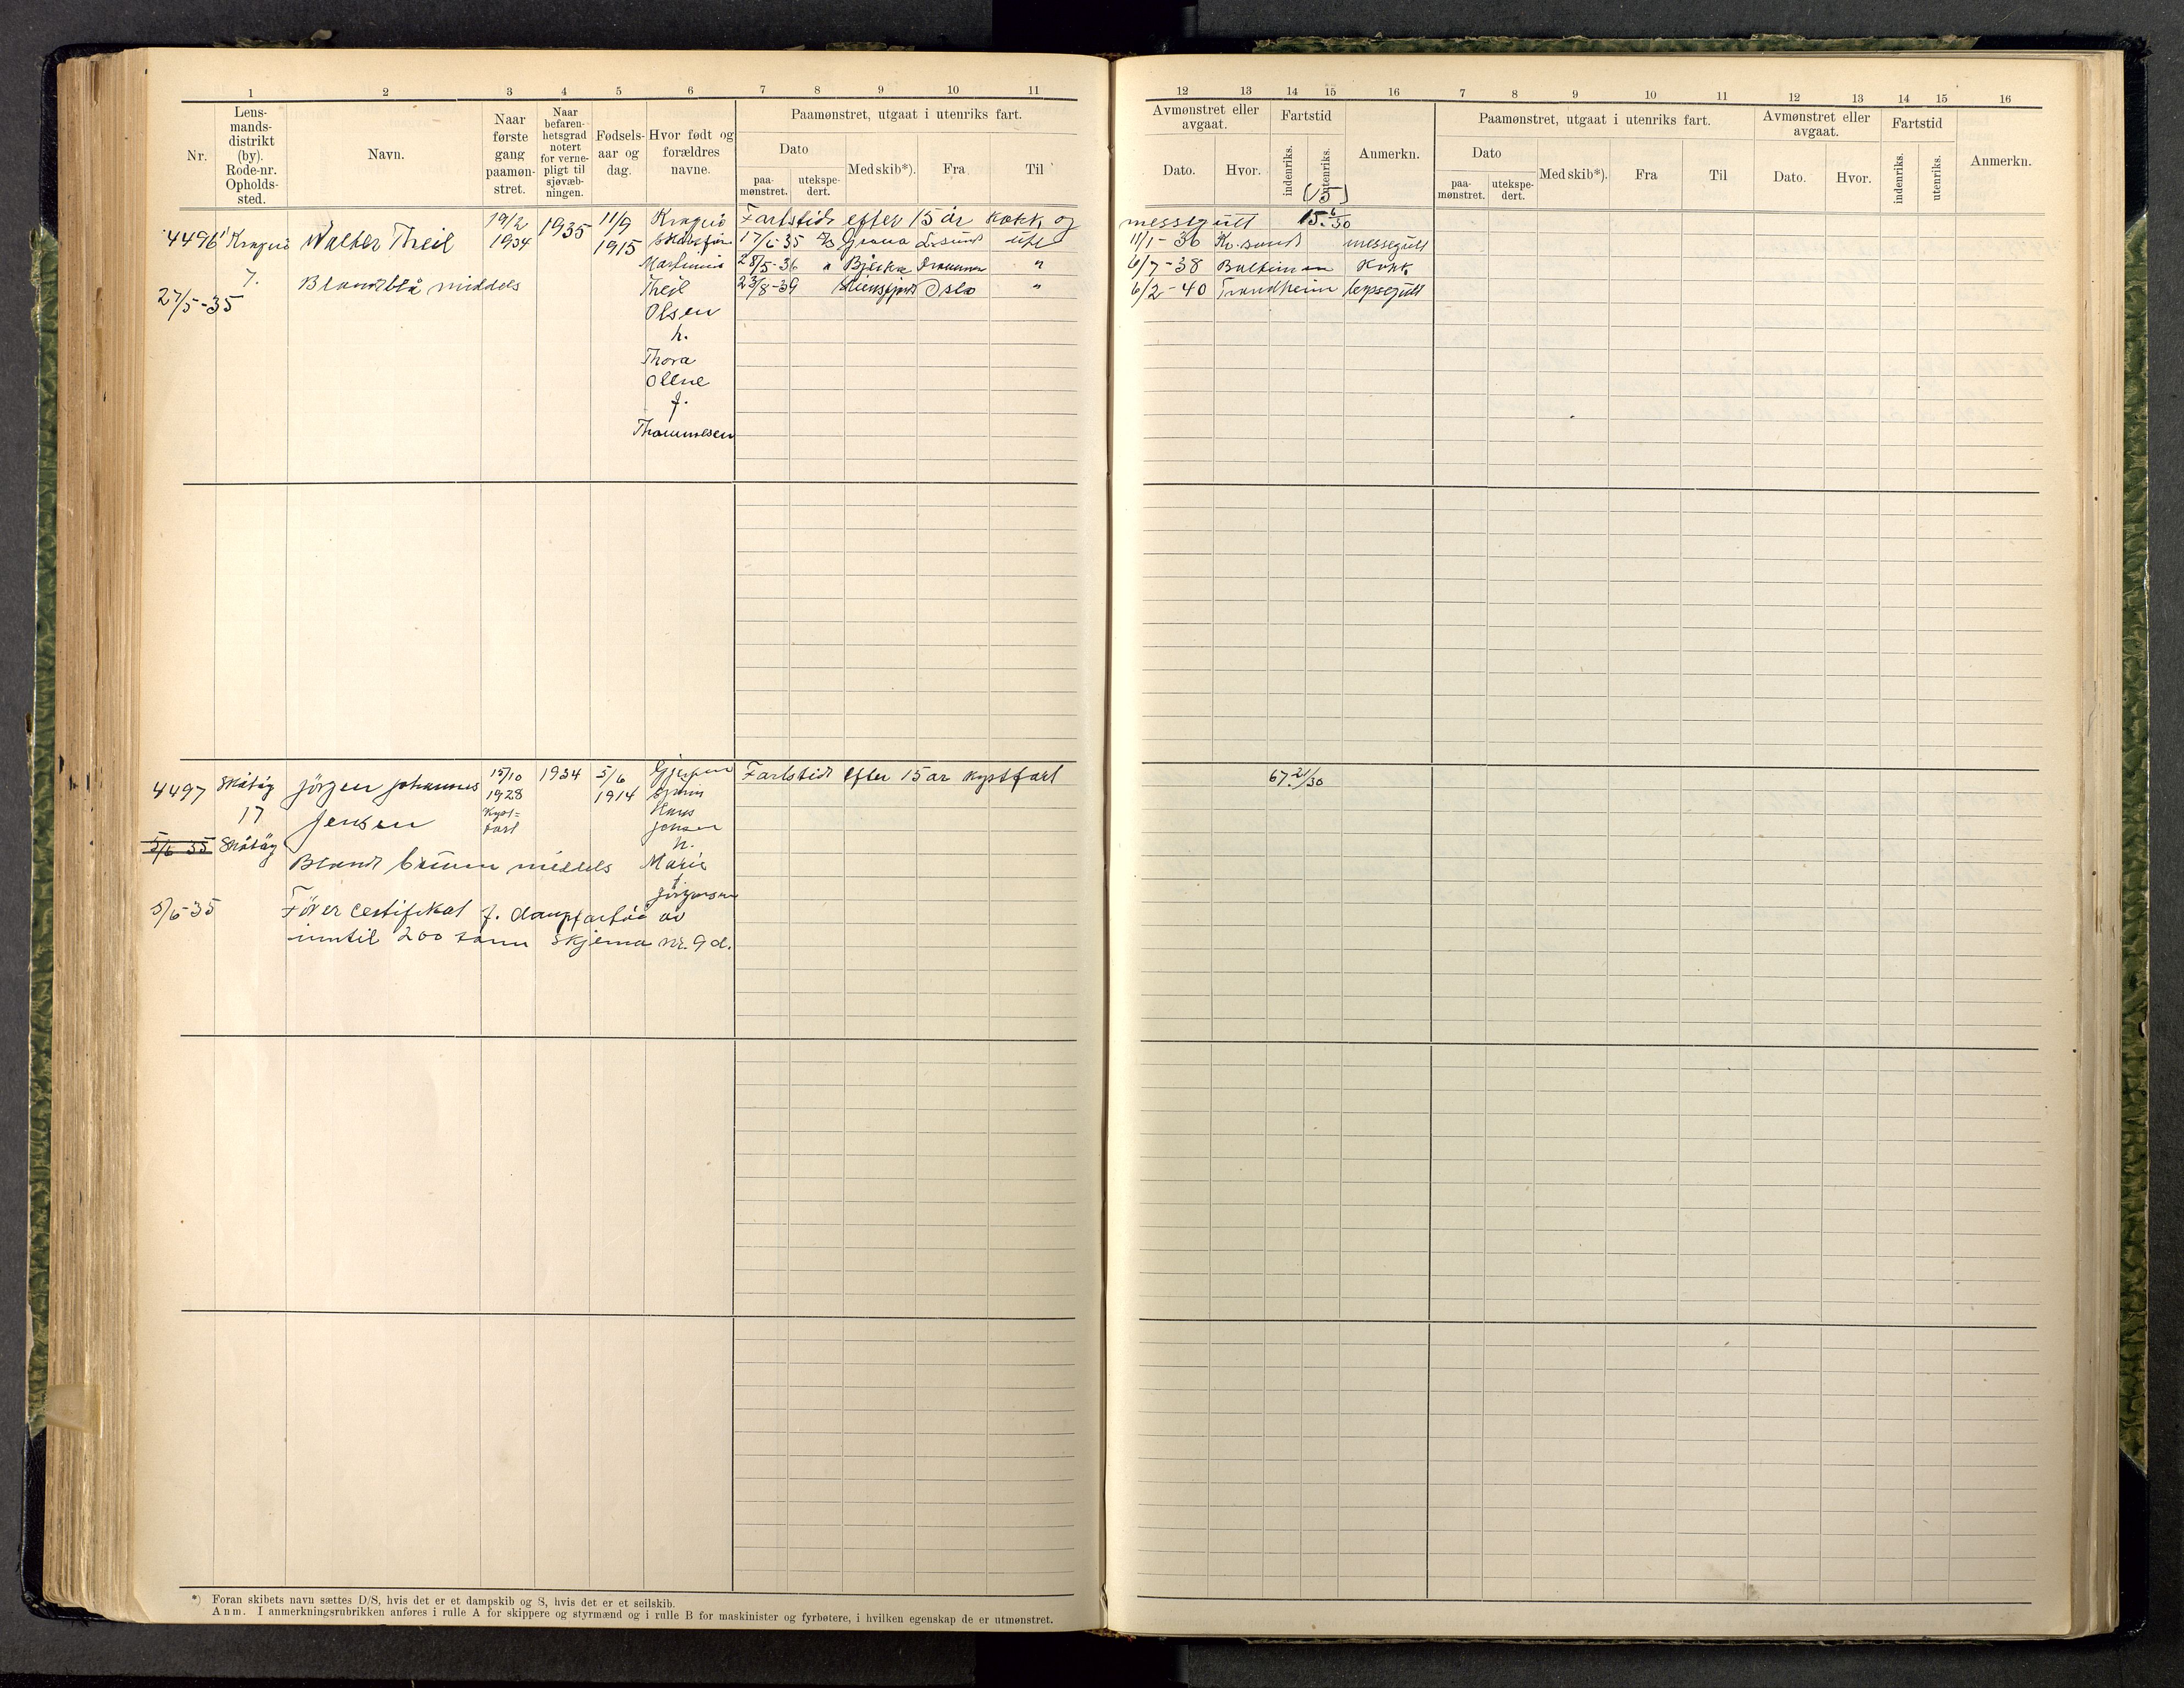 1 2 3 4 5 6 7 8 9 10 11
Nr.
Lens-
mands-
distrikt
(by).
Rode-nr.
Opholds-
sted.
Navn.
Naar
første
gang
paamøn-
stret.
Naar
befaren-
hetsgrad
notert
for verne-
pligt til
sjøvæb-
ningen.
Fødsels-
aar og
dag.
Hvor født og
forældres
navne.
Paamønstret, utgaat i utenriks fart.
Dato
paa-
mønstret.
utekspe-
dert.
Med skib*).
Fra
Til
4496 Kragerø Walter Theil 19/2 1935 11/9 Kragerø Fartstid efter 15 år kokk og
1934 1915 17/6-35 D/S Grana L.sund utl
7. Martinius 28/5-36 " Drammen "
Blond blå middels Theil 23/8-39 Oslo "
27/5-35
Olsen
h.
Thora
Oline
f.
Thommesen
4497 Skåtøy Jörgen Johannes 15/10 1934 5/6 Gjerpen Fartstid efter 15 år kystfart
1928 1914
17 Jensen Kyst- Hans
fart Jensen
5/6-35 Skåtøy h.
Blond brun middels Marie
f
Jörgensen
5/6-35 Fører certifikat f. dampfartøi av
inntil 200 tonn skjema nr. 9 d.
*) Foran skibets navn sættes D/S, hvis det er et dampskib og S, hvis det er et seilskib.
Anm. I anmerkningsrubrikken anføres i rulle A for skippere og styrmænd og i rulle B for maskinister og fyrbøtere, i hvilken egenskap de er utmønstret.
12 13 14 15 16 7 8 9 10 11 12 13 14 15 16
Avmønstret eller
avgaat.
Dato.
Hvor.
Fartstid
indenriks.
utenriks.
(15)
Anmerkn.
Paamønstret, utgaat i utenriks fart.
Dato
paa-
mønstret.
utekspe-
dert.
Med skib*).
Fra
Til
Avmønstret eller
avgaat.
Dato.
Hvor.
Fartstid
indenriks.
utenriks.
Anmerkn.
messegutt 15. 6/30
11/1-36 Kr.sund messegutt
6/7-38 Baltimore Kokk
6/2-40 Trondheim byssegutt
67. 21/30